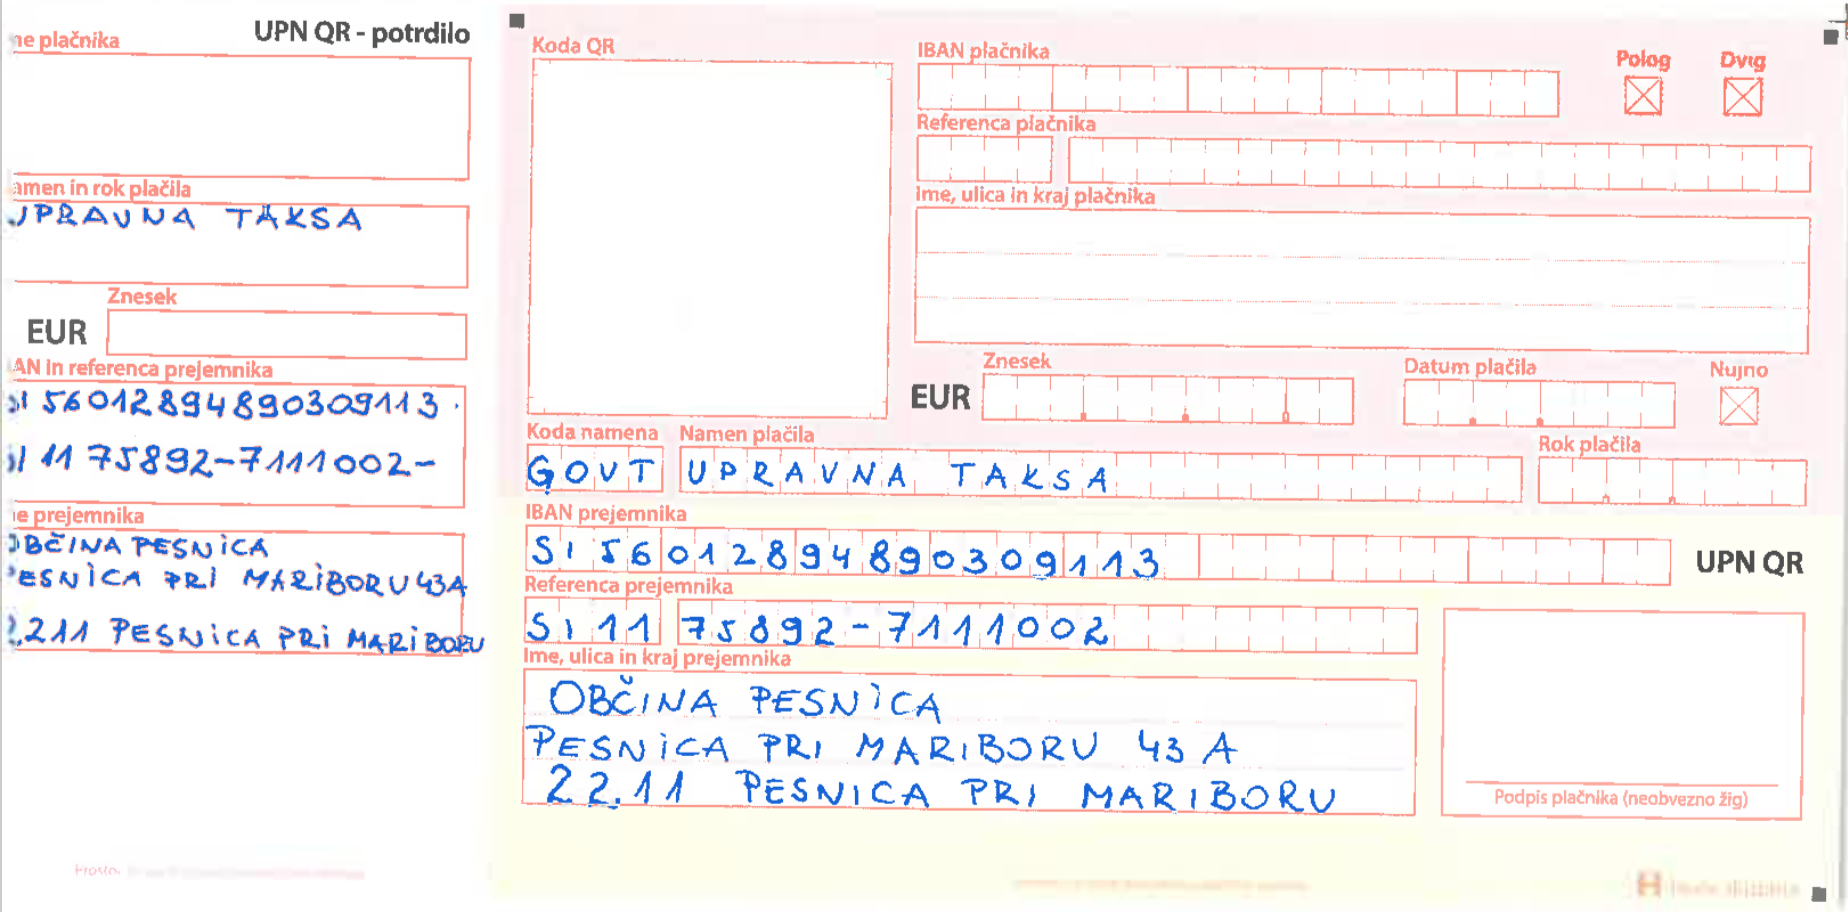 UPN QR - potrdilo
ne plačnika
amen in rok plačila
UPRAVNA TAKSA
Znesek
EUR
AN in referenca prejemnika
SI 56012894890309113
SI 11 75892-7111002-
ne prejemnika
OBČINA PESNICA
PESNICA PRI MARIBORU 43A
2211 PESNICA PRI MARIBORU
Koda QR
IBAN plačnika
Polog
Dvig
Referenca plačnika
Ime, ulica in kraj plačnika
Znesek
Datum plačila
Nujno
EUR
Koda namena
Namen plačila
Rok plačila
GOVT UPRAVNA TAKSA
IBAN prejemnika
SI56012894890309113
UPN QR
Referenca prejemnika
SI11 75892-7111002
Ime, ulica in kraj prejemnika
OBČINA PESNICA
PESNICA PRI MARIBORU 43 A
22.11 PESNICA PRI MARIBORU
Podpis plačnika (neobvezno žig)